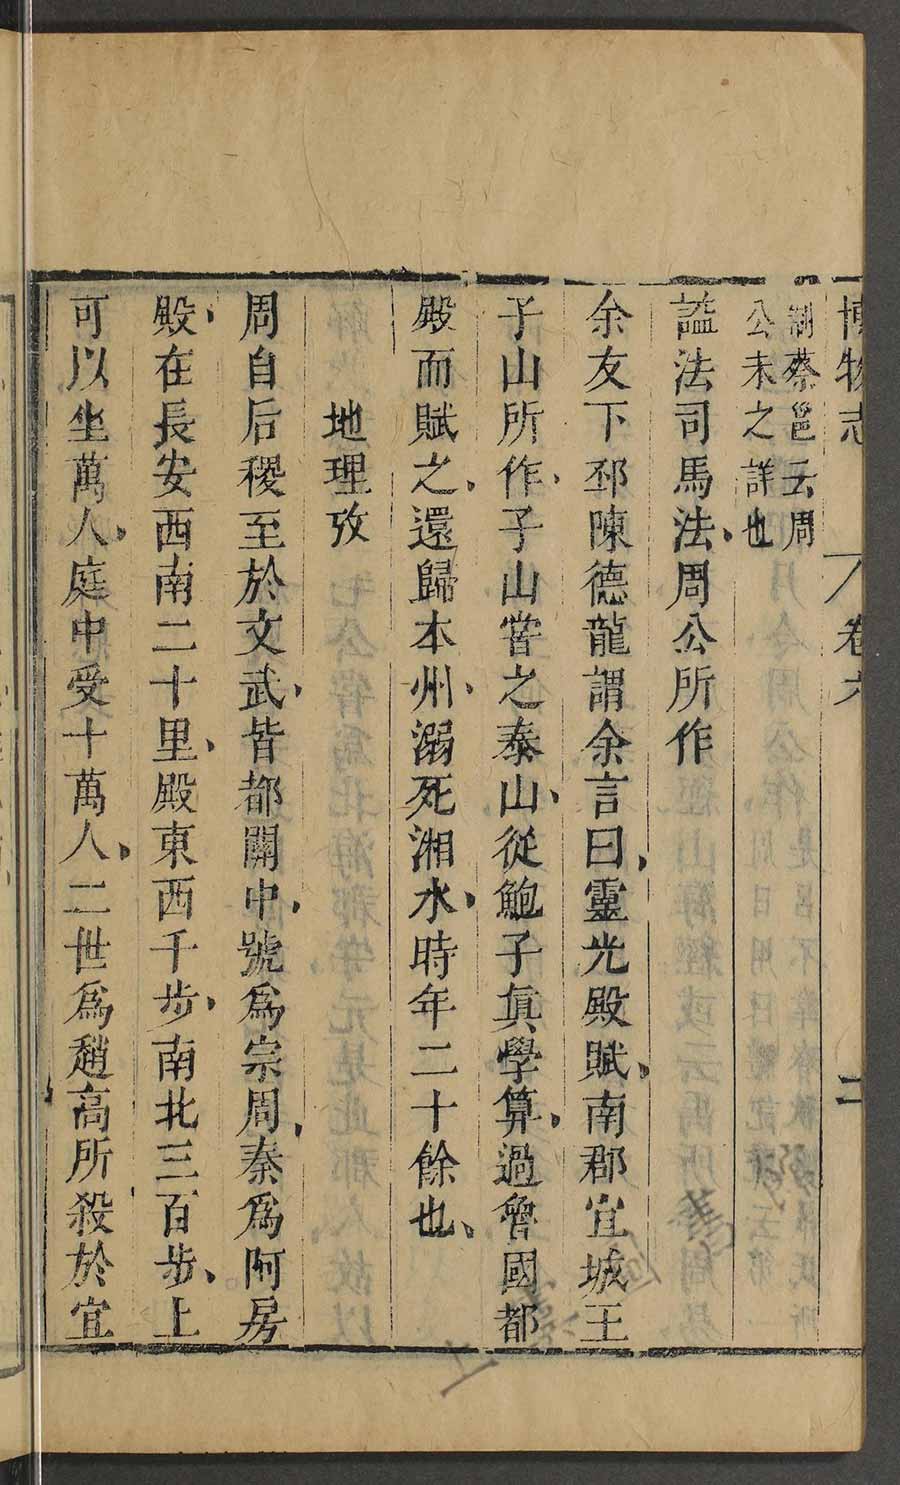 博物志 卷六 二
制蔡邕云周
公未之詳也
謚法司馬法、周公所作
余友下邳陳德龍謂余言曰、靈光殿賦、南郡宜城王
子山所作、子山甞之泰山、從鮑子眞學算、過魯國都
殿而賦之、還歸本州、溺死湘水、時年二十餘也、
地理攷
周自后稷至於文武、皆都關中、號爲宗周、秦爲阿房
殿、在長安西南二十里、殿東西千步、南北三百步、上
可以坐萬人、庭中受十萬人、二世爲趙高所殺於宜